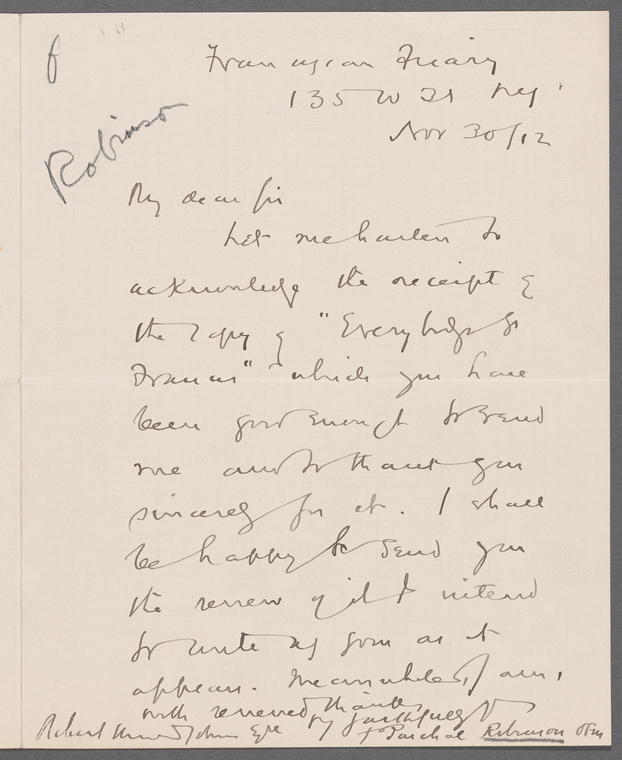 Robinson
Franciscan Friary
135 W 31 NY
Nov 30/12
My dear Sir
Let me hasten to
acknowledge the receipt of
the copy of "Everybody's St
Francis" which you have
been good enough to send
me and to thank you
sincerely for it. I shall
be happy to send you
the review of it I intend
to write as soon as it
appears. Meanwhile, I am,
with renewed thanks
yr faithfully
Robert Underwood Johnson Esqre
fr Paschal Robinson OFM